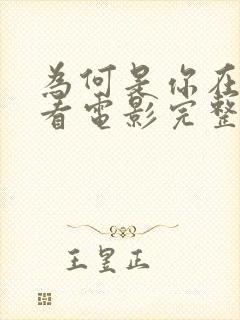 為何是你在
看電影完整
王昱正